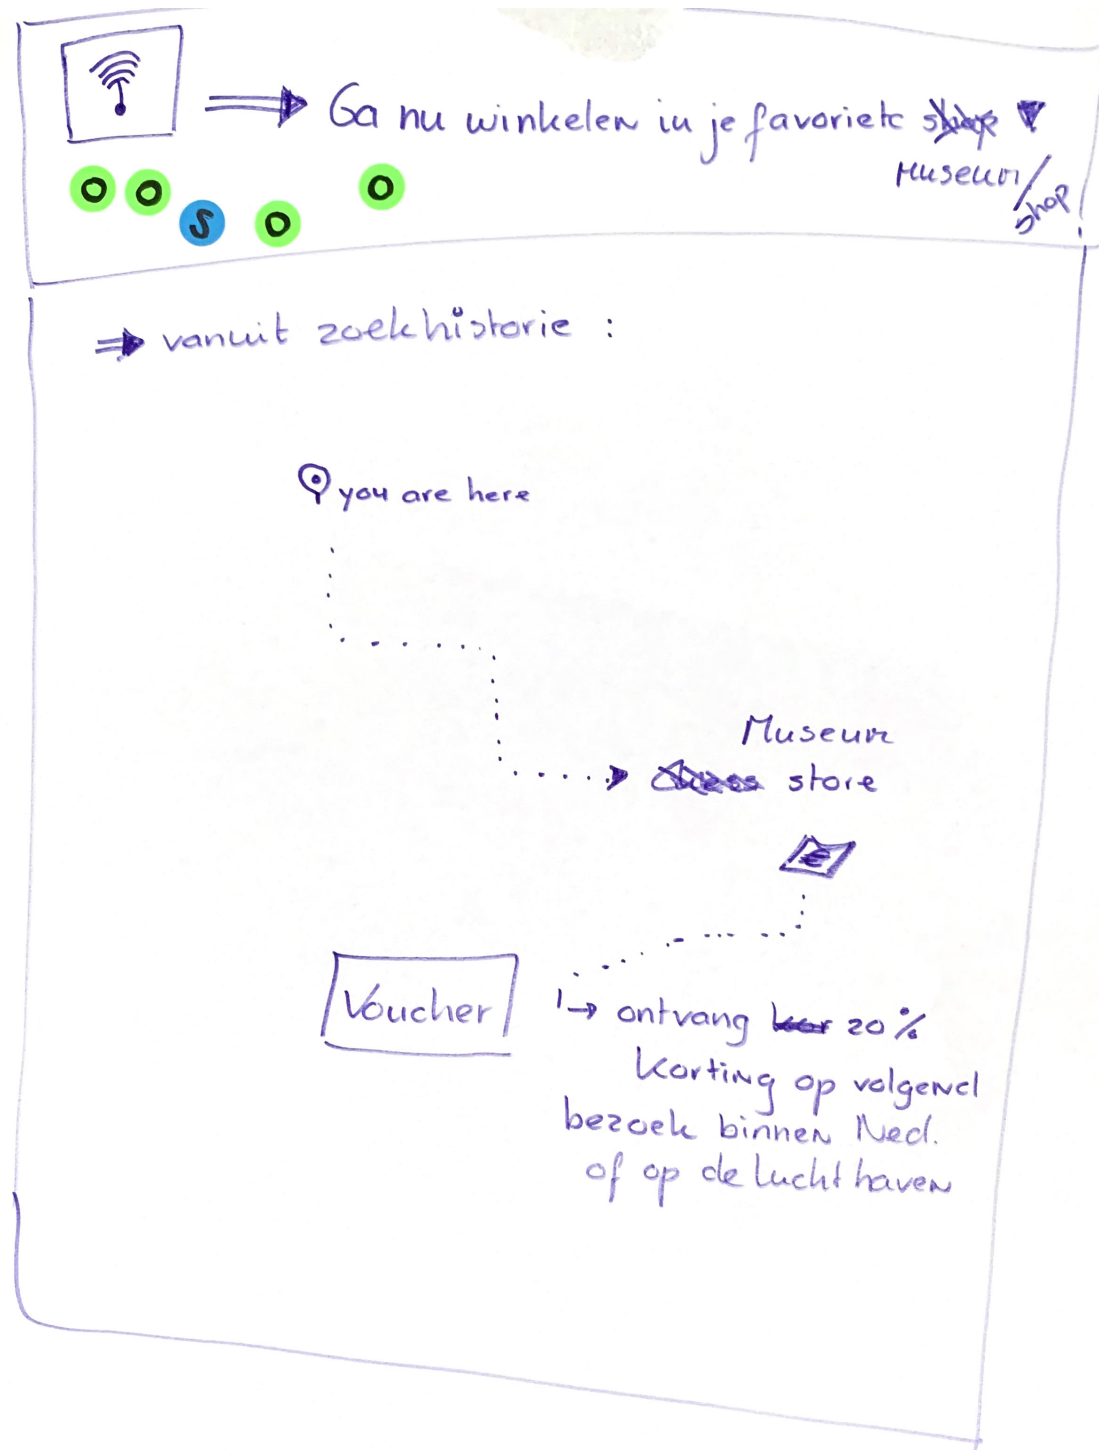 Ga nu winkelen in je favoriete shop
Museum/
shop
O O O
S O
vanuit zoekhistorie :
you are here
Museum
store
Voucher
ontvang kor 20%
korting op volgend
bezoek binnen Ned.
of op de luchthaven